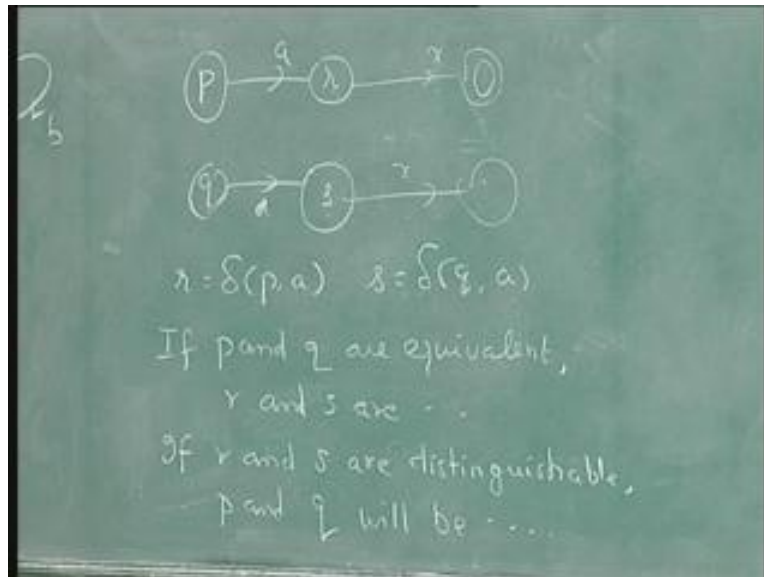 b
p a r x
q a s x
r = δ(p, a) s = δ(q, a)
If p and q are equivalent,
r and s are ..
If r and s are distinguishable,
p and q will be .....